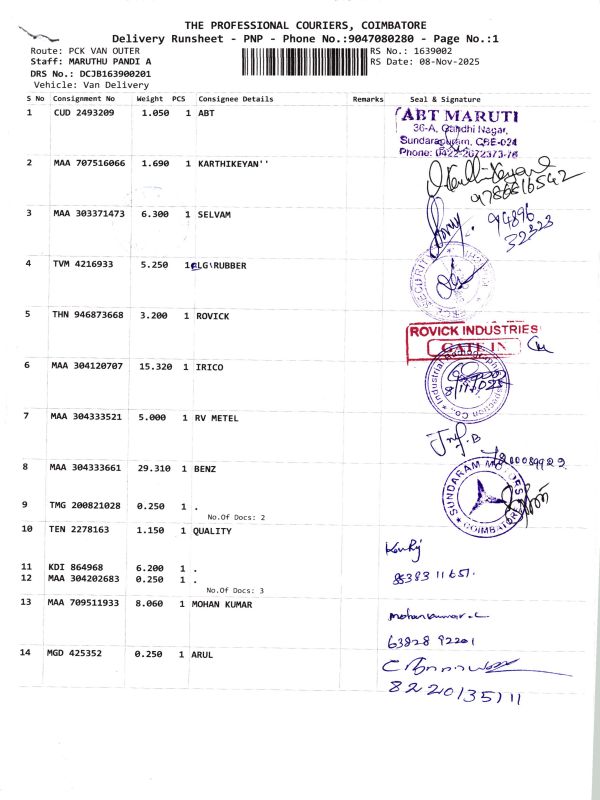 THE PROFESSIONAL COURIERS, COIMBATORE
Delivery Runsheet - PNP - Phone No.:9047080280 - Page No.:1
Route: PCK VAN OUTER
RS No.: 1639002
Staff: MARUTHU PANDI A
RS Date: 08-Nov-2025
DRS No.: DCJB163900201
Vehicle: Van Delivery
S No Consignment No Weight PCS Consignee Details Remarks Seal & Signature
1 CUD 2493209 1.050 1 ABT
ABT MARUTI
36-A, Gandhi Nagar,
Sundarapuram, CBE-024
Phone: 0422-2672373-76
2 MAA 707516066 1.690 1 KARTHIKEYAN''
9786616542
3 MAA 303371473 6.300 1 SELVAM
94896
32323
4 TVM 4216933 5.250 1 LG\RUBBER
SECURITY
5 THN 946873668 3.200 1 ROVICK
ROVICK INDUSTRIES
GATE IN
6 MAA 304120707 15.320 1 IRICO
Industrial Radiographic Inspection Co.,
7 MAA 304333521 5.000 1 RV METEL
8 MAA 304333661 29.310 1 BENZ
SUNDARAM MOTORS
COIMBATORE
9 TMG 200821028 0.250 1 .
No.Of Docs: 2
10 TEN 2278163 1.150 1 QUALITY
11 KDI 864968 6.200 1 .
12 MAA 304202683 0.250 1 .
No.Of Docs: 3
83383 11651.
13 MAA 709511933 8.060 1 MOHAN KUMAR
mohankumar.c
63828 92201
14 MGD 425352 0.250 1 ARUL
8220135111